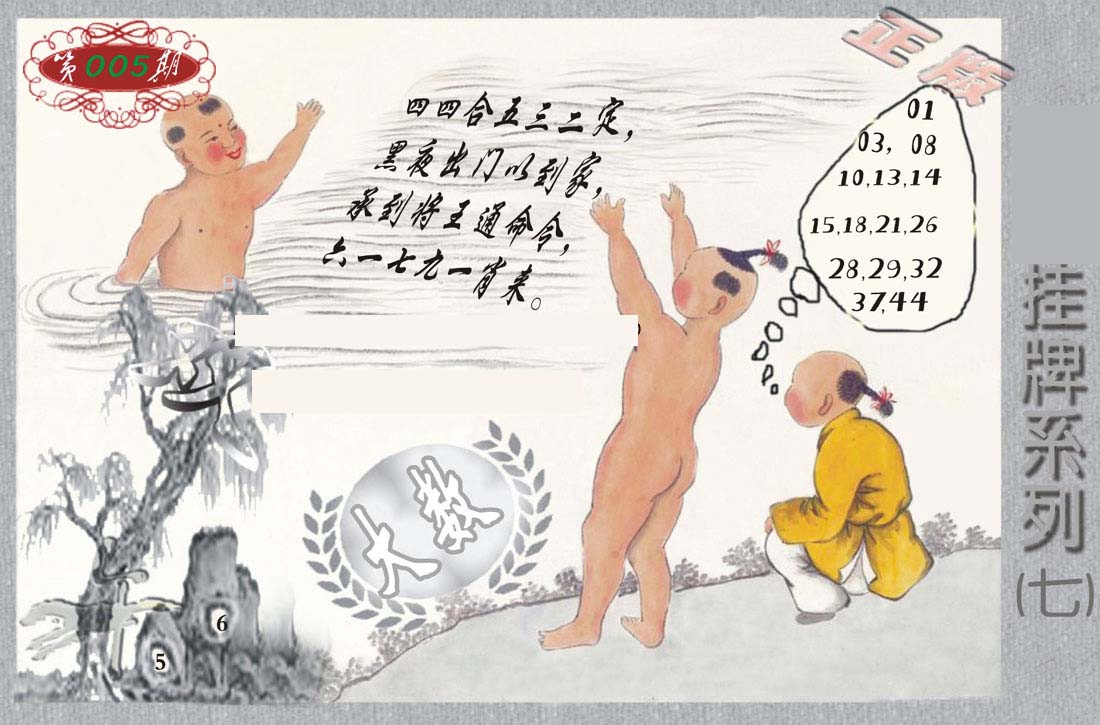 第005期
正版
四四合五三二定，
黑夜出门以到家，
承到将王通命令，
六一七九一肖来。
01
03, 08
10,13,14
15,18,21,26
28,29,32
37,44
大数
6
5
挂牌系列(七)